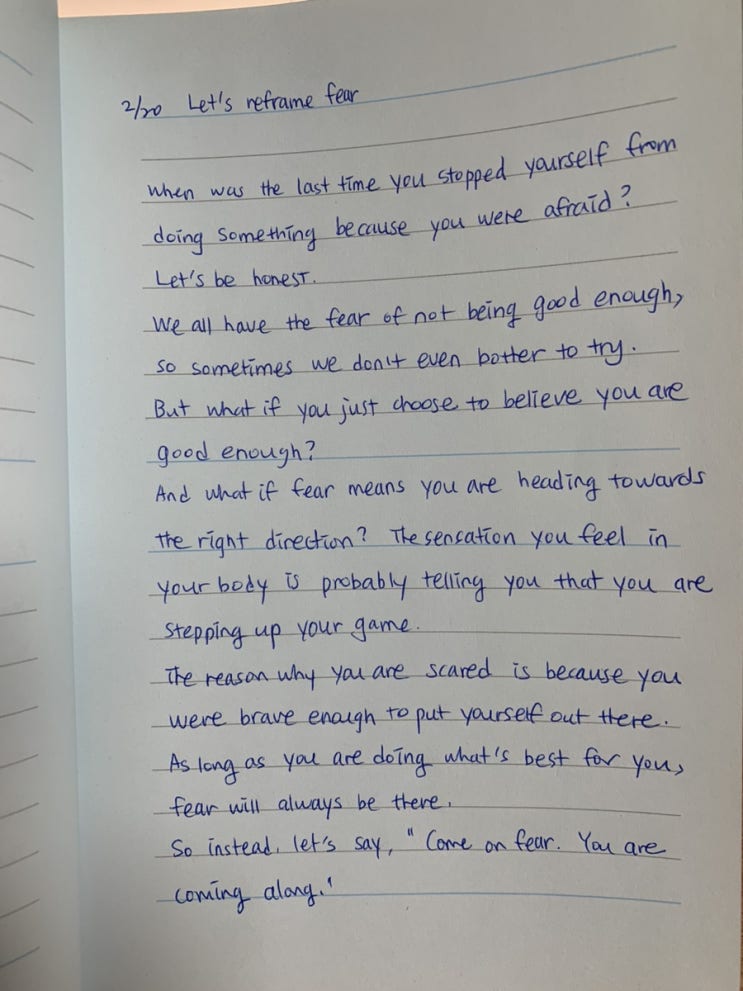 2/20 Let's reframe fear
When was the last time you stopped yourself from
doing something because you were afraid?
Let's be honest.
We all have the fear of not being good enough,
so sometimes we don't even botter to try.
But what if you just choose to believe you are
good enough?
And what if fear means you are heading towards
the right direction? The sensation you feel in
your body is probably telling you that you are
stepping up your game.
The reason why you are scared is because you
were brave enough to put yourself out there.
As long as you are doing what's best for you,
fear will always be there.
So instead, let's say, "Come on fear. You are
coming along.'